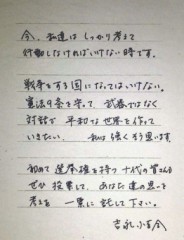 今、私達は しっかり考えて
行動しなければいけない時です。
戦争をする国になってはいけない。
憲法9条を守って、武器ではなく
対話で 平和な世界を作って
いきたい。 私は強くそう思います。
初めて選挙権を持つ十代の皆さん
ぜひ投票して、あなた達の思い
考えを 一票に託して下さい。
吉永小百合